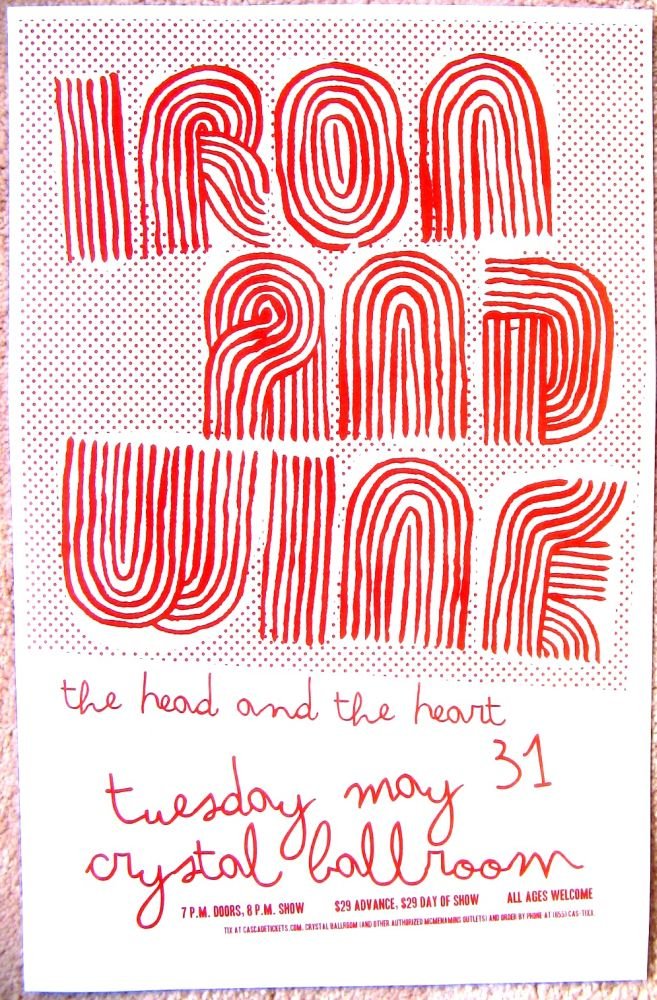 IRON
AND
WINE
the head and the heart
tuesday may 31
crystal ballroom
7 P.M. DOORS, 8 P.M. SHOW $29 ADVANCE, $29 DAY OF SHOW ALL AGES WELCOME
TIX AT CASCADETICKETS.COM, CRYSTAL BALLROOM (AND OTHER AUTHORIZED MCMENAMINS OUTLETS) AND ORDER BY PHONE AT (855) CAS-TIXX.